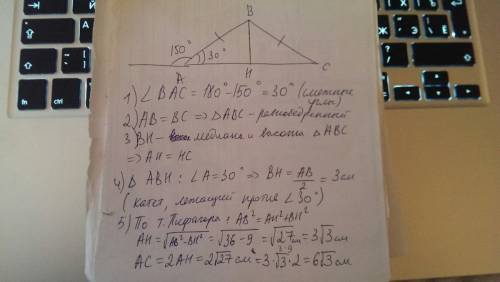 B
150°
30°
A
H
C
1) ∠BAC = 180° - 150° = 30° (смежные углы)
2) AB = BC => △ABC - равнобедренный
3) BH - медиана и высота △ABC
=> AH = HC
4) △ ABH: ∠A = 30° => BH = AB/2 = 3см
(катет, лежащий против ∠30°)
5) По т. Пифагора: AB² = AH² + BH²
AH = √AB² - BH² = √36 - 9 = √27 см = 3√3 см
3·9
AC = 2AH = 2√27 см = 3·√3·2 = 6√3 см